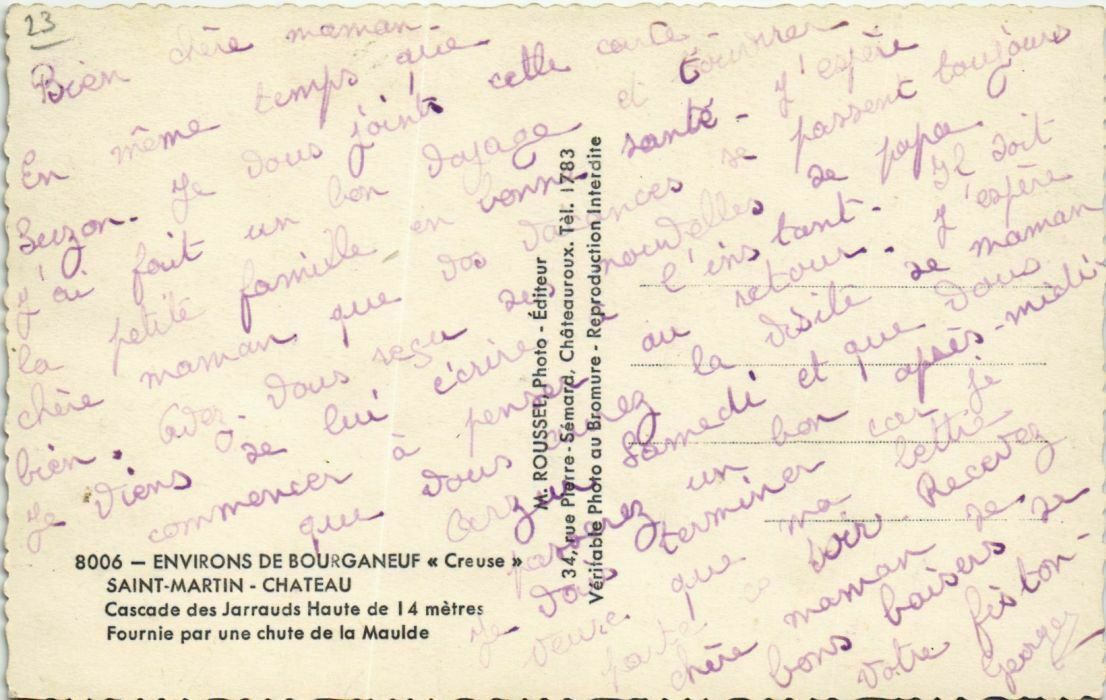 23
Bien chère maman-
En même temps que
Suzon. Je vous joints cette carte-
J'ai fait un bon voyage et trouver
la petite famille en bonne santé- J'espère
chère maman que vos vacances se passent toujours
bien. Avez-vous reçu des nouvelles de papa
Je viens de lui écrire à l'instant- Il doit
commencer à penser au retour. J'espère
que vous aurez la visite de maman
samedi et que vous
passerez un bon après-midi-
Je dois terminer car je
que ma lettre
parte ce soir. Recevez
chère maman de
bons baisers de
votre fiston-
Georges
M. ROUSSEL, Photo - Éditeur
34, rue Pierre-Sémard, Châteauroux. Tél. 1783
Véritable Photo au Bromure - Reproduction Interdite
8006 — ENVIRONS DE BOURGANEUF « Creuse »
SAINT-MARTIN - CHATEAU
Cascade des Jarrauds Haute de 14 mètres
Fournie par une chute de la Maulde